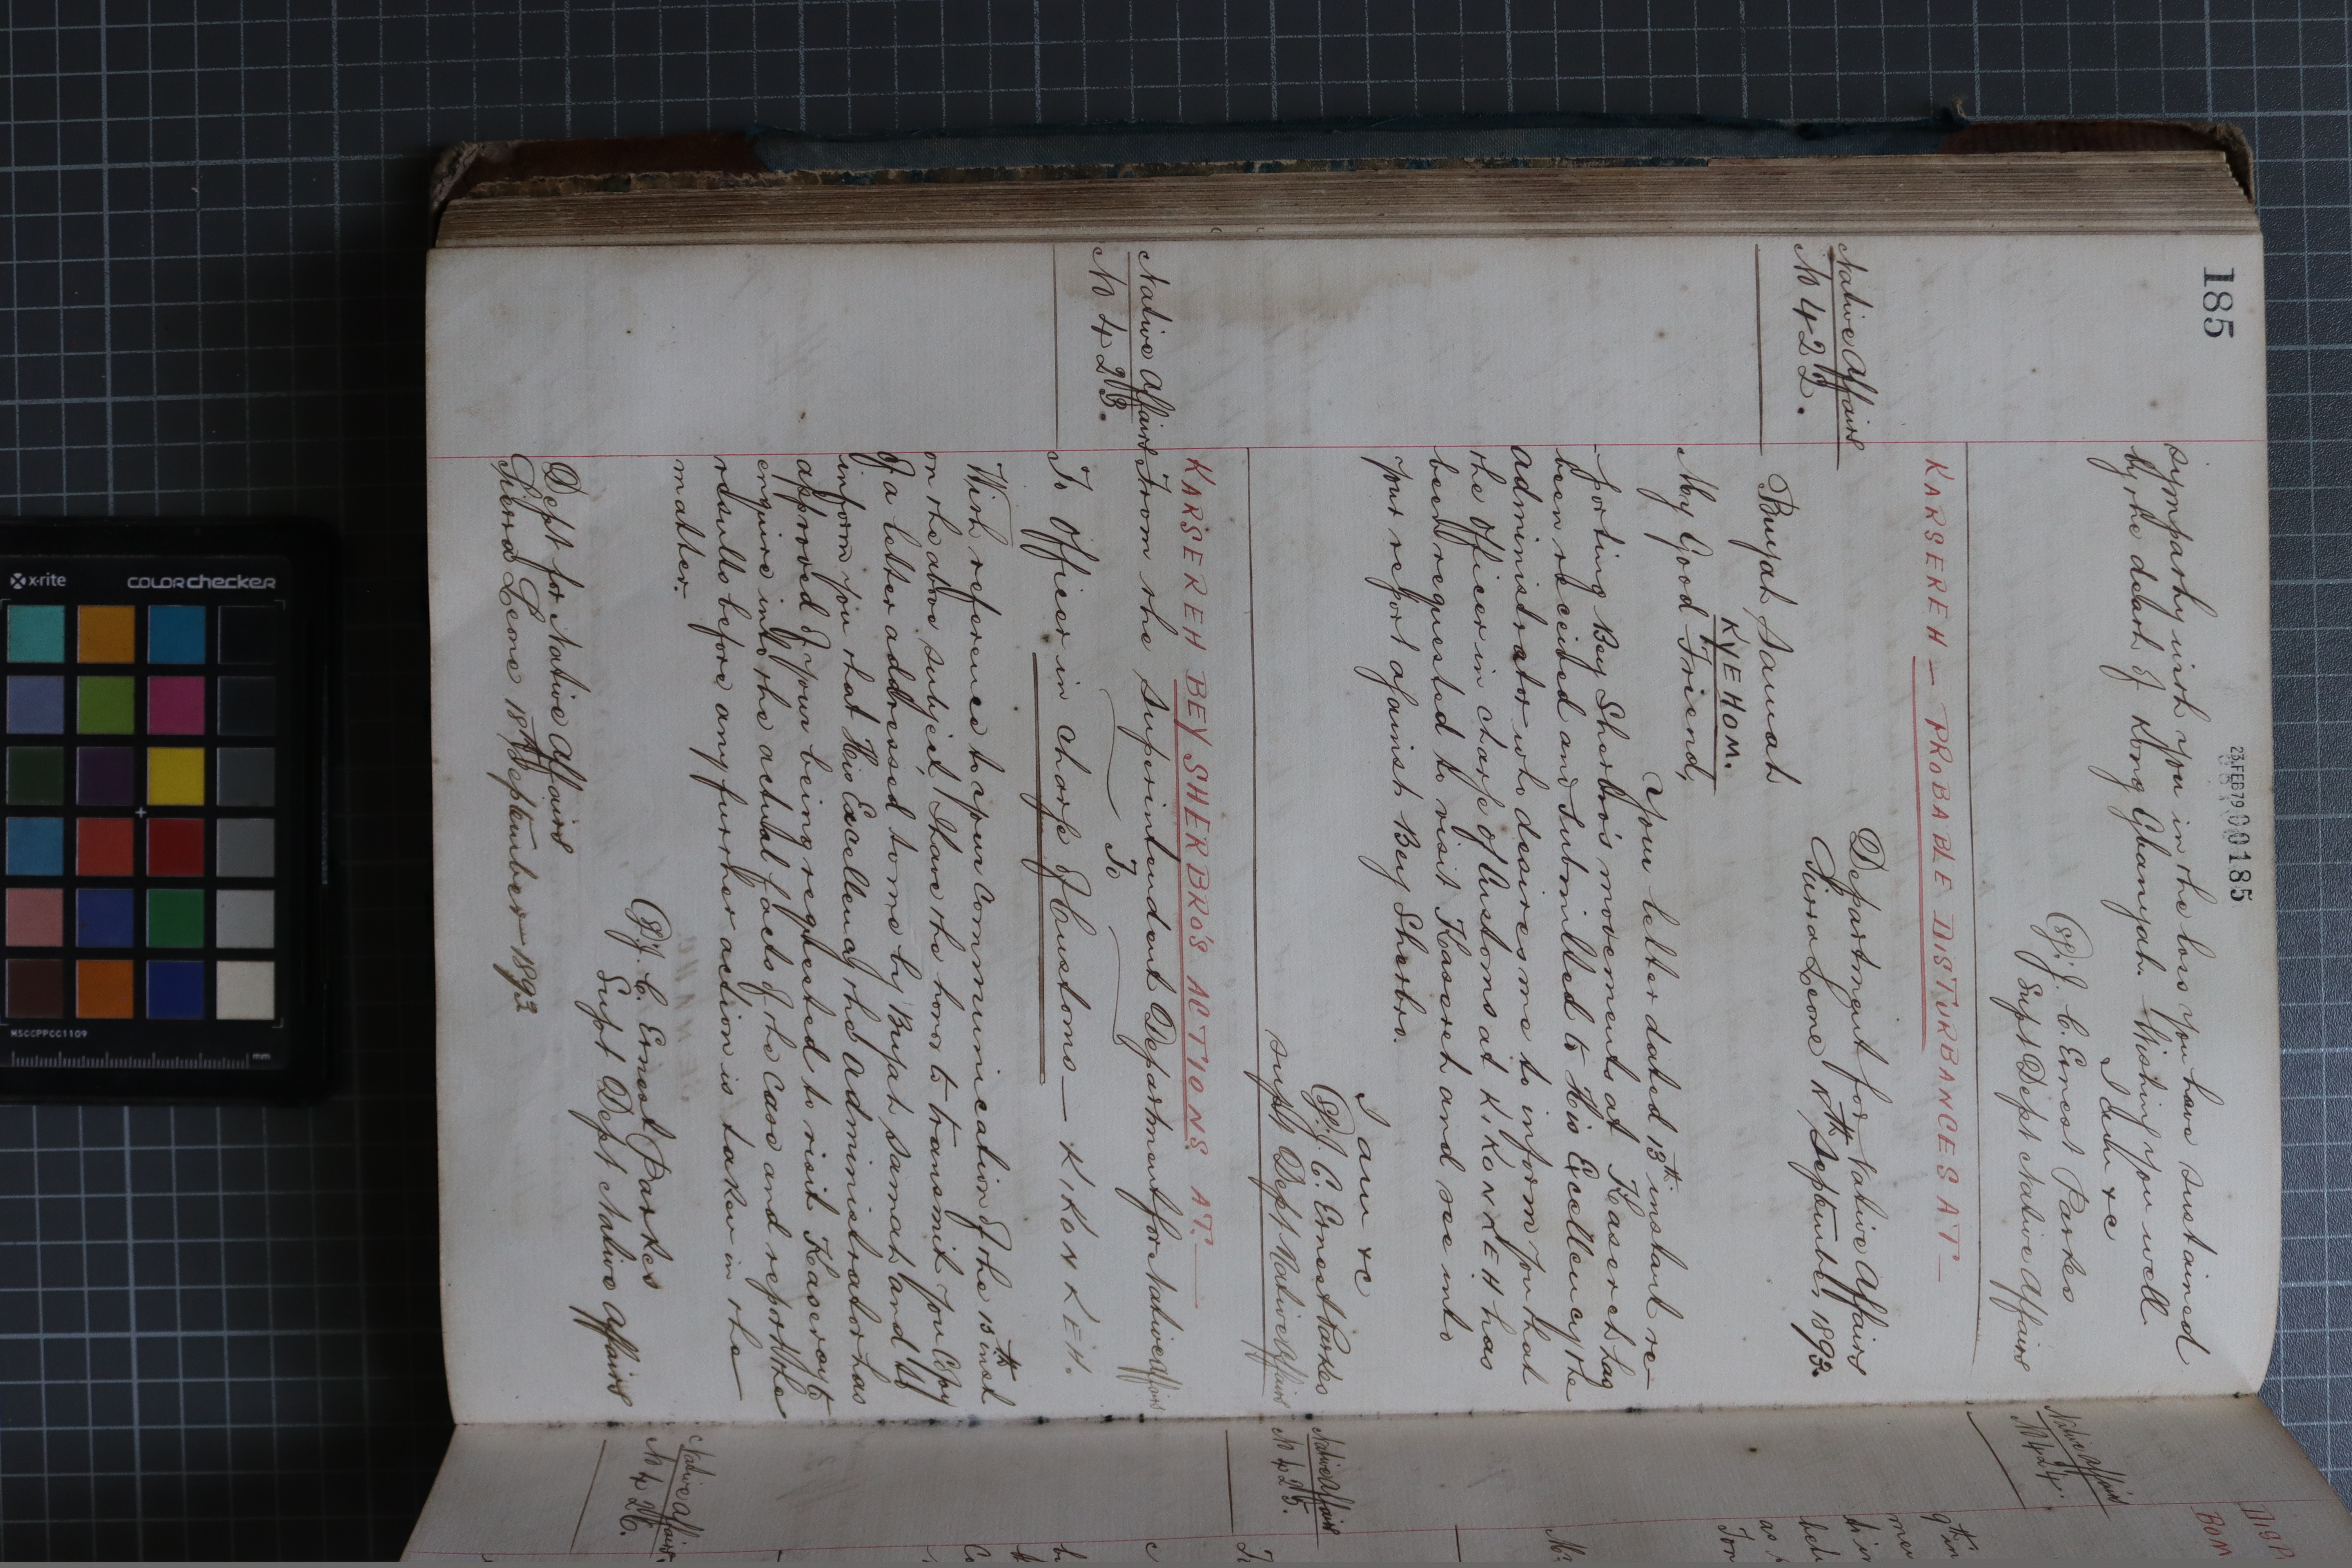 185
23.FEB79,00185
sympathy with you in the loss you have sustained
by the death of Kong Gbanyah. Wishing you well
I am &c
(Sg) J. C. Ernest Parkes
Supt Dept Native Affairs
KARSEREH — PROBABLE DISTURBANCES AT —
Native Affairs
No 422.
Department for Native Affairs
Sierra Leone th September, 1893.
Buyah Samah
KYEHOM.
My Good Friend,
Your letter dated 13th instant re-
-porting Bey Sherbro's movements at Kasereh has
been received and submitted to His Excellency the
Administrator who desires me to inform you that
the Officer in charge of Customs at KIKONKEH has
been requested to visit Kasereh and see into
your report against Bey Sherbro.
I am &c
(Sg) J. C. Ernest Parkes
Supt Dept Native Affairs
KARSEREH BEY SHERBRO'S ACTIONS AT. —
Native Affairs
No 423.
From the Superintendent Department for Native Affairs
To
To Officer in charge of Customs — KIKONKEH.
With reference to your communication of the 15th inst
on the above subject, I have the honor to transmit you Copy
of a letter addressed to me by Buyah Samah and to
inform you that His Excellency the Administrator has
approved of your being requested to visit Kasereh to
enquire into the actual facts of the case and report the
results before any further action is taken in the
matter.
(Sg) J. C. Ernest Parkes
Supt Dept Native Affairs
Dept for Native Affairs
Sierra Leone 18th September 1893
Native Affairs
No 424.
Native Affairs
No 425.
Native Affairs
No 426.
DISP
BOM
x-rite
colorchecker
MSCCPPCC1109
mm